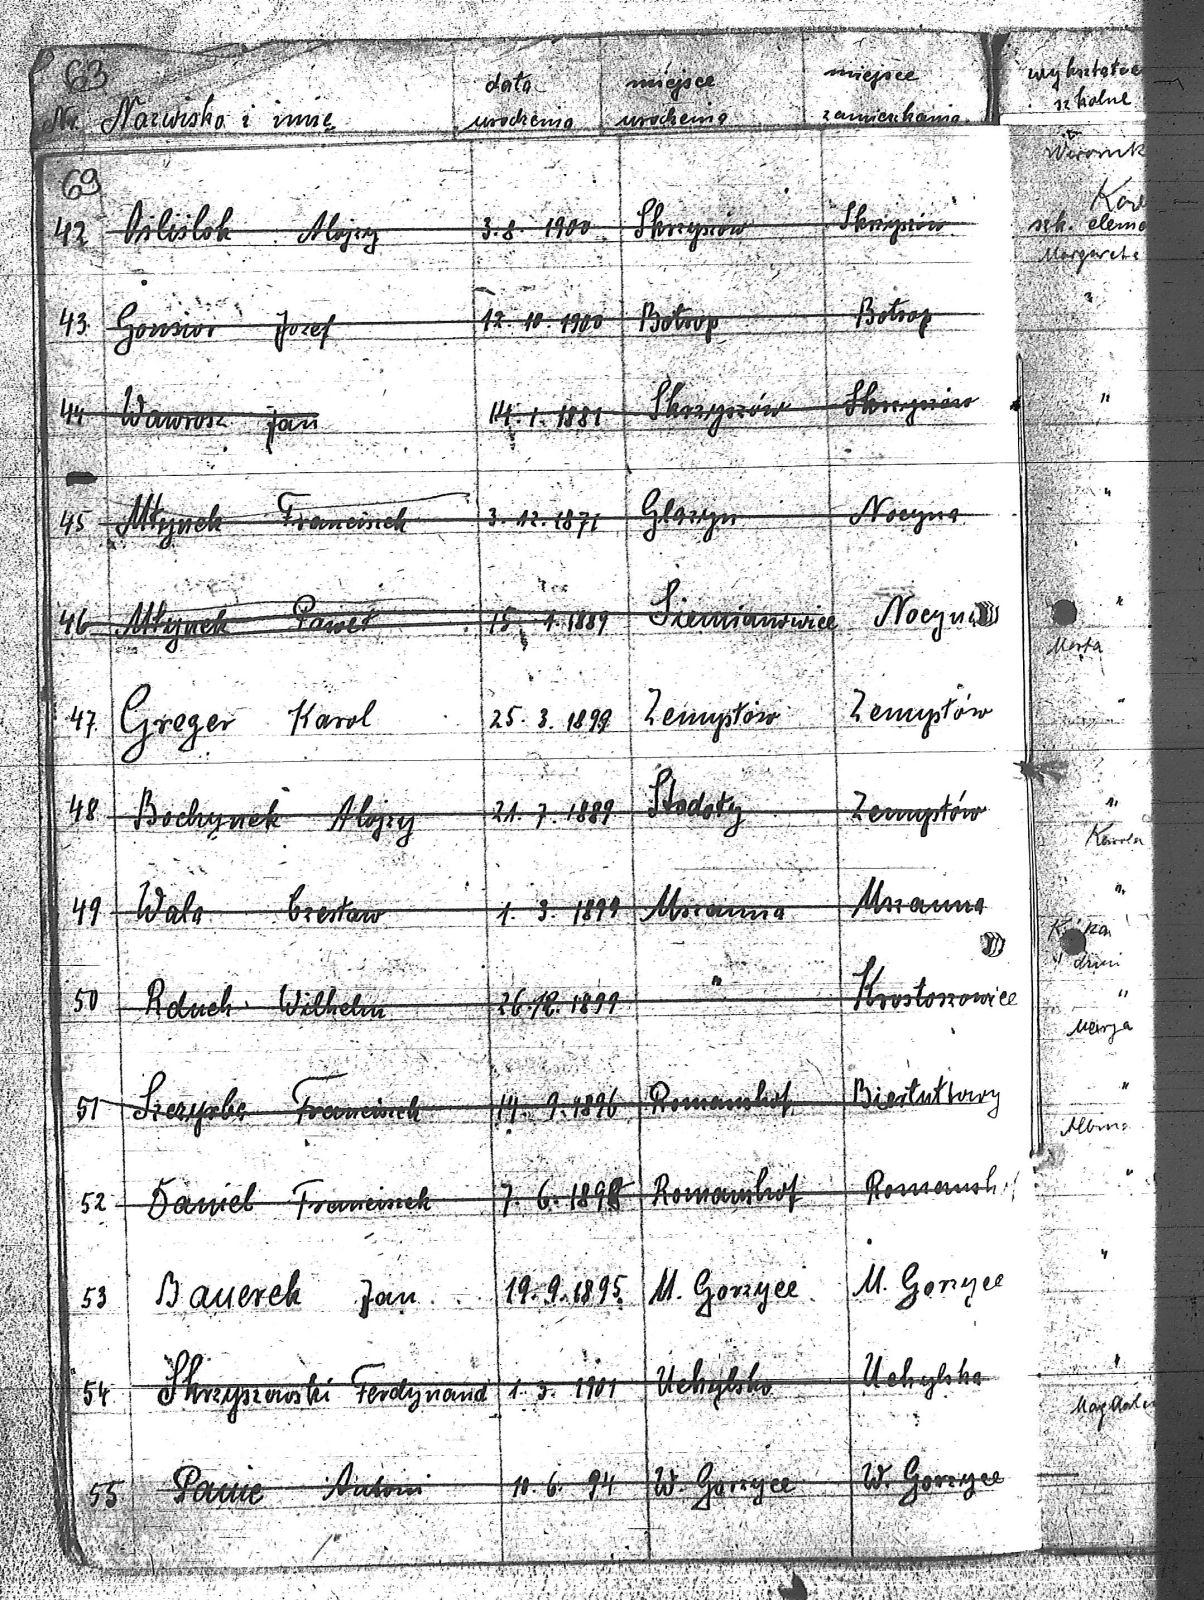 63
Nr. Nazwisko i imię data urodzenia miejsce urodzenia miejsce zamieszkania wykształce szkolne
69
42 Alojzy 3.8. 1900 Skrzyszów Skrzyszów szk. elem
Margareta
43. Gonsior Jozef 12. 10. 1900 Botrop Botrop "
44 Wawrosz Jan 14. 1. 1881 Skrzyszów Skrzyszów "
45 Młynek Franciszek 3. 12. 1871 Glazyn Nocyna "
46 Młynek Paweł 15. 1. 1889 Siemianowice Nocyna "
Marta
47. Greger Karol 25. 3. 1899 Zemysłów Zemysłów "
48 Bochynek Alojzy 21. 7. 1889 Stodoły Zemysłów "
Karola
49 Wala Czesław 1. 3. 1899 Mszanna Mszanna "
50 Rduch Wilhelm 26.12. 1899 " Krostoszowice "
Marja
51 Szczyrba Franciszek 14. 9. 1896 Romanshof "
52 Daniel Franciszek 7. 6. 1898 Romanshof Romansh "
53 Bauerek Jan 19. 9. 1895 M. Gorzyce M. Gorzyce "
54 Skrzyszowski Ferdynand 1. 3. 1901 Uchylsko Uchylsko "
Magdalen
55 Panic Antoni 10. 6. 94 W. Gorzyce W. Gorzyce